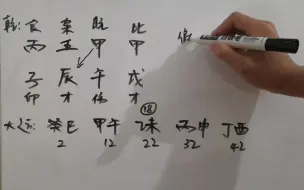 乾: 食 杂 阮 比
丙 壬 甲 甲
子 辰 午 戌
卯 才 伤 才
18
大运: 癸巳 甲午 乙未 丙申 丁酉
2 12 22 32 42